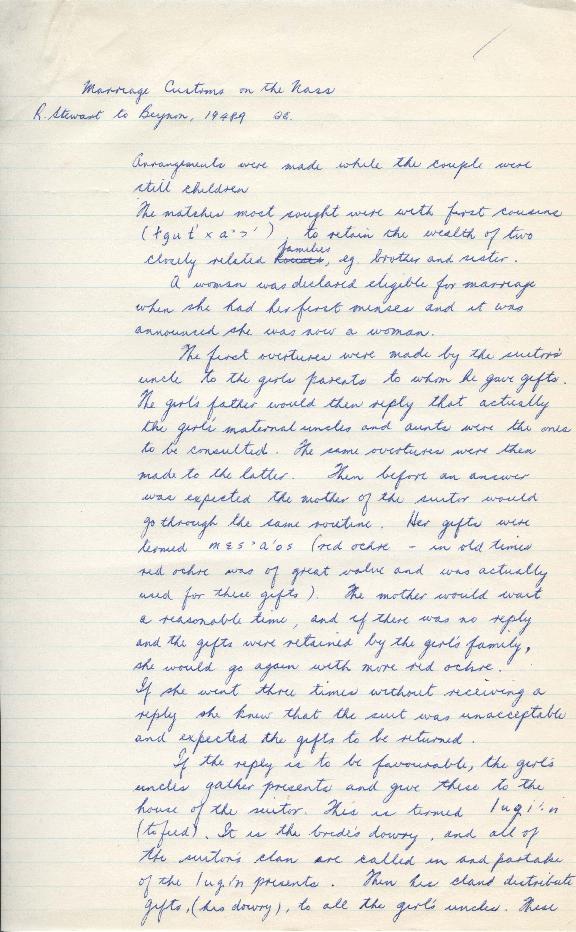 Marriage Customs on the Nass
R. Stewart to Beynon, 1948?
Arrangements were made while the couple were
still children
The matches most sought were with first cousins
to retain the wealth of two
families
closely related houses, eg. brother and sister.
A woman was declared eligible for marriage
when she had her first menses and it was
announced she was now a woman.
The first overtures were made by the suitor's
uncle to the girls parents to whom he gave gifts.
The girl's father would then reply that actually
the girls' maternal uncles and aunts were the ones
to be consulted. The same overtures were then
made to the latter. Then before an answer
was expected the mother of the suitor would
go through the same routine. Her gifts were
termed mɛs·a'os (red ochre - in old times
red ochre was of great value and was actually
used for these gifts). The mother would wait
a reasonable time, and if there was no reply
and the gifts were retained by the girl's family,
she would go again with more red ochre.
If she went three times without receiving a
reply she knew that the suit was unacceptable
and expected the gifts to be returned.
If the reply is to be favourable, the girl's
uncles gather presents and give these to the
house of the suitor. This is termed lugi'n
(to feed). It is the bride's dowry, and all of
the suitor's clan are called in and partake
of the lugi'n presents. Then his cland distribute
gifts, (his dowry), to all the girl's uncles. These